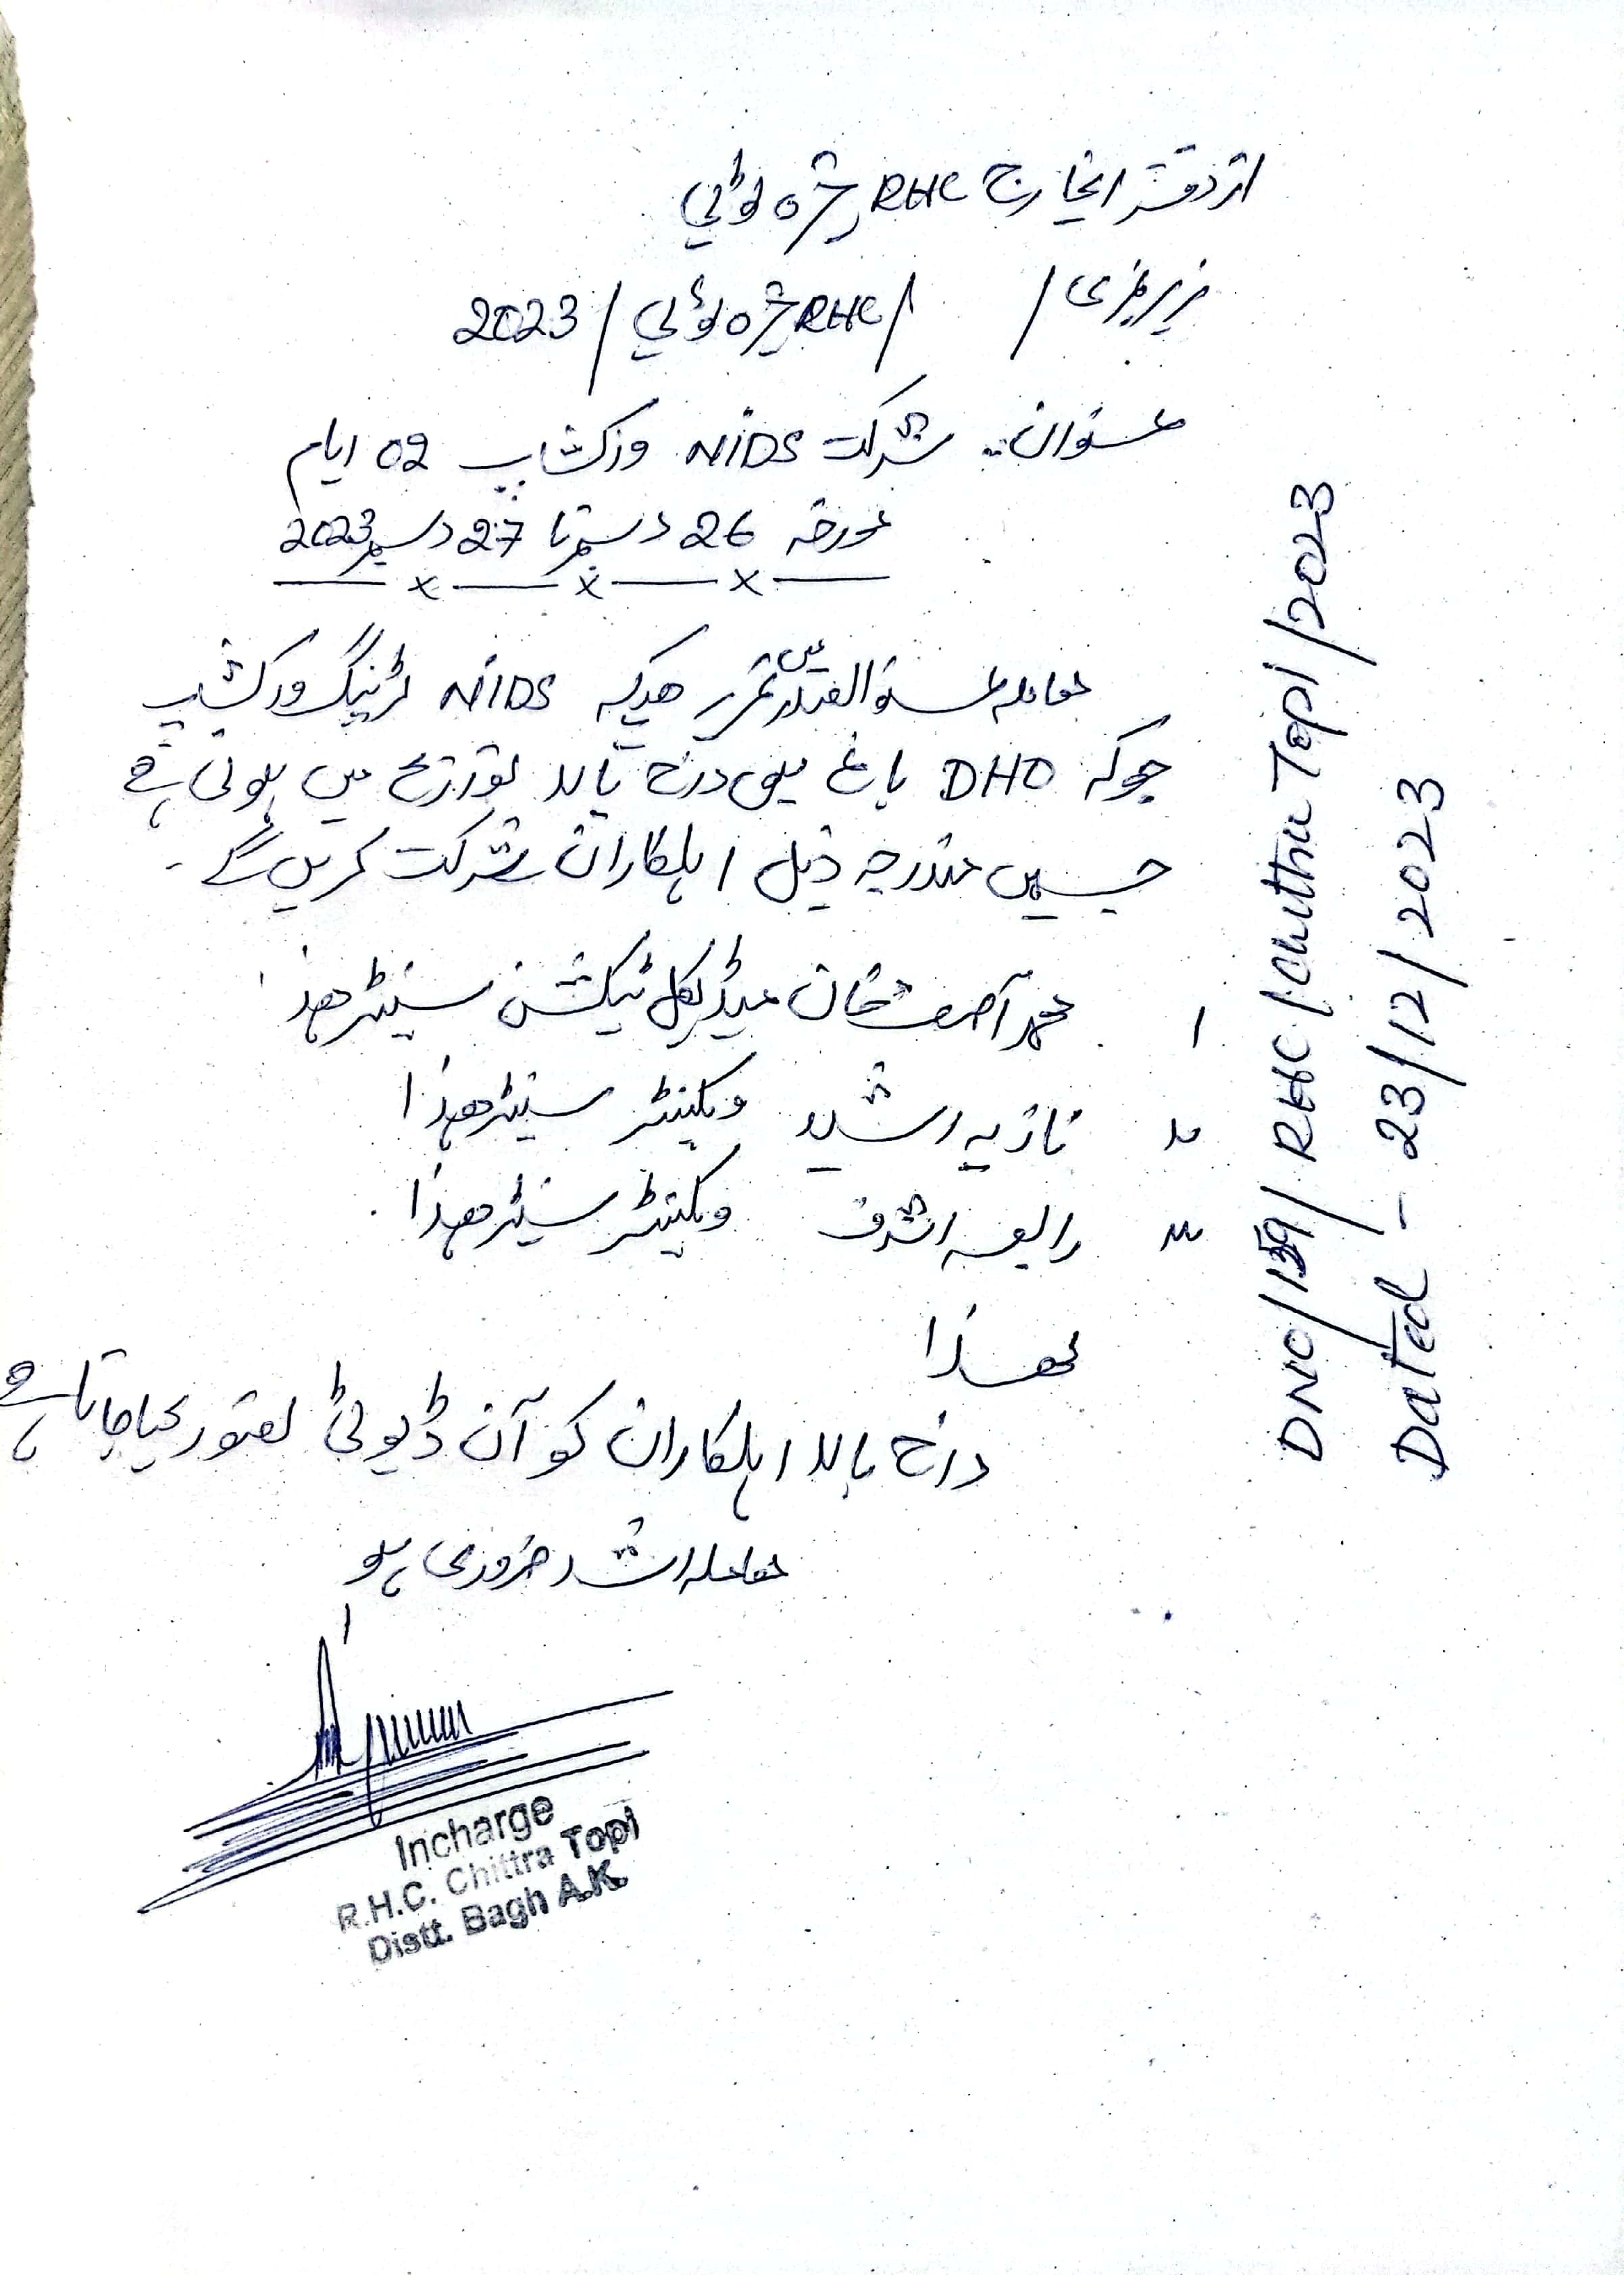 از دفتر انچارج RHC چترہ ٹوپی
زیر نمبری / / RHC چترہ ٹوپی / 2023
عنوان:۔ شرکت NIDS ورکشاپ 02 ایام
مورخہ 26 دسمبر تا 27 دسمبر 2023
معاملہ عنوان الصدر میں تحریر ھیکہ NIDS ٹرنینگ ورکشاپ
جوکہ DHO باغ میں درج بالا تواریخ میں ہونی ہے
جسمیں مندرجہ ذیل اہلکاران شرکت کریں گے ۔
۱ محمد آصف خان میڈیکل ٹیکنیشن سنیٹر ھذا
۲ نازیہ رشید ویکینٹر سنیٹر ھذا
۳ رابعہ اشرف ویکینٹر سنیٹر ھذا .
لھذا
درج بالا اہلکاران کو آن ڈیوٹی تصور کیا جاتا ہے
معاملہ اشد ضروری ہو
Incharge
R.H.C. Chittra Topi
Distt. Bagh A.K.
DNO/159/ RHC / Chittra Topi /2023
Dated - 23/12/2023